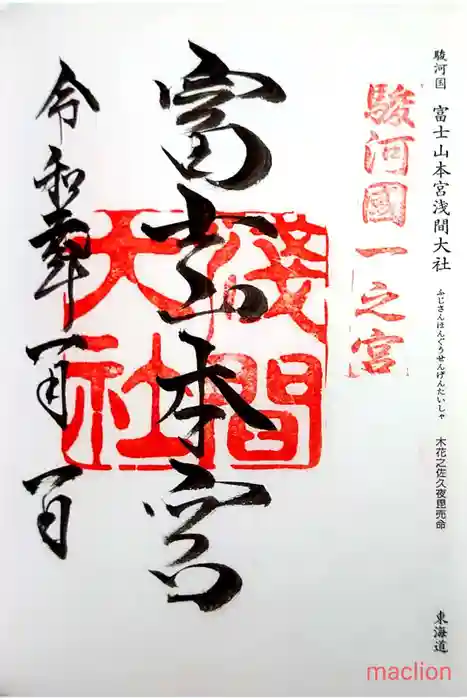 駿河国 富士山本宮浅間大社 ふじさんほんぐうせんげんたいしゃ 木花之佐久夜毘売命 東海道
駿河國一之宮
富士山本宮
淺間
大社
令和年一月一日
maclion